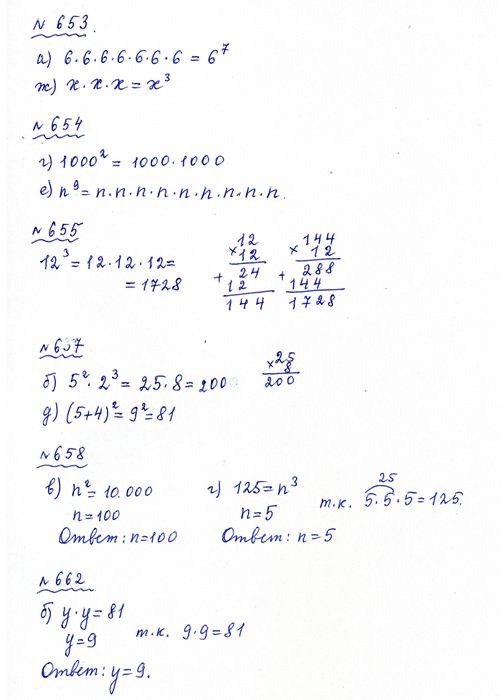 № 653.
а) 6·6·6·6·6·6·6 = 6⁷
ж) х·х·х = х³
№ 654
г) 1000² = 1000·1000
е) n⁹ = n·n·n·n·n·n·n·n·n.
№ 655
12³ = 12·12·12 =
= 1728
12
×12
+ 24
12
144
144
× 12
+ 288
144
1728
№ 657
б) 5²·2³ = 25·8 = 200
×25
8
200
д) (5+4)² = 9² = 81
№ 658
в) n² = 10.000
n = 100
Ответ: n = 100
г) 125 = n³
n = 5
Ответ: n = 5
25
т.к. 5·5·5 = 125.
№ 662
б) у·у = 81
у = 9
т.к. 9·9 = 81
Ответ: у = 9.